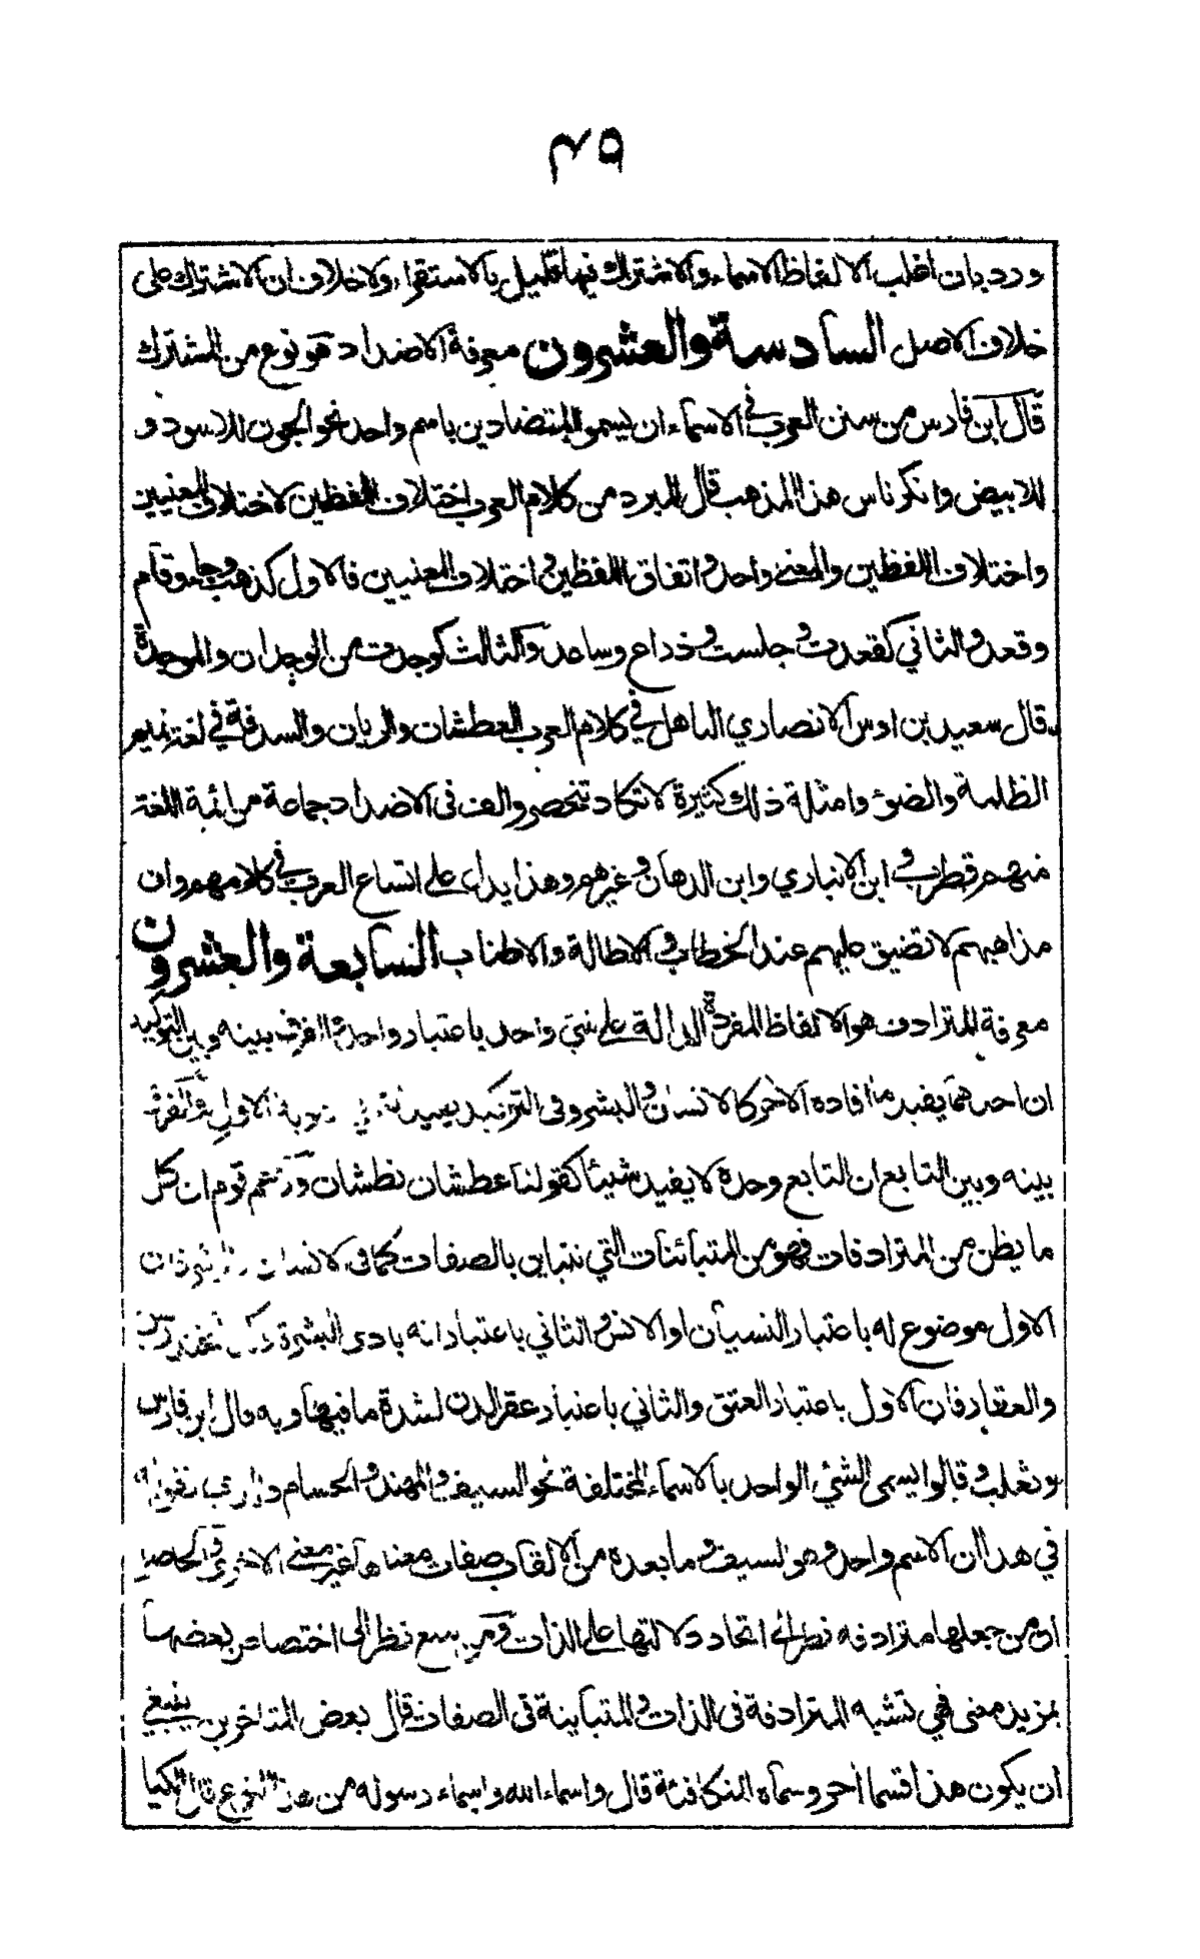 ٤٩
ورد بان اغلب الالفاظ الاسماء والاشتراك فيها قليل بالاستقراء ولا خلاف ان الاشتراك على
خلاف الاصل السادسة والعشرون معرفة الاضداد هو نوع من المشترك
قال ابن فارس من سنن العرب في الاسماء ان يسموا المتضادين باسم واحد نحو الجون للاسود و
للابيض وانكر ناس هذا المذهب قال المبرد من كلام العرب اختلاف اللفظين لاختلاف المعنيين
واختلاف اللفظين والمعنى واحد واتفاق اللفظين واختلاف المعنيين فالاول كذهب وجاء وقام
وقعد والثاني كقعدت وجلست وذراع وساعد والثالث كوجدت من الوجدان والموجدة
قال سعيد بن اوس الانصاري الناهل في كلام العرب العطشان والريان والسدفة في لغة تميم
الظلمة والضوء وامثلة ذلك كثيرة لا تكاد تنحصر والف في الاضداد جماعة من ائمة اللغة
منهم قطرب وابن الانباري وابن الدهان وغيرهم وهذا يدل على اتساع العرب في كلامهم وان
مذاهبهم لا تضيق عليهم عند الخطاب والاطالة والاطناب السابعة والعشرون
معرفة المترادف هو الالفاظ المفردة الدالة على شيء واحد باعتبار واحد والفرق بينه وبين التوكيد
ان احدهما يفيد ما افاده الآخر كالانسان والبشر وفي التوكيد يفيد الاول والفرق
بينه وبين التابع ان التابع وحده لا يفيد شيئا كقولنا عطشان نطشان وزعم قوم ان كل
ما يظن من المترادفات فهو من المتبائنات التي تتباين بالصفات كما في الانسان والبشر فان
الاول موضوع له باعتبار النسيان او الانس والثاني باعتبار انه بادى البشرة
والعقار فان الاول باعتبار العتق والثاني باعتبار عقر الدن لشدة ما فيها وبه قال ابن فارس
وثعلب وقالوا يسمى الشئ الواحد بالاسماء المختلفة نحو السيف والمهند والحسام
في هذا ان الاسم واحد وهو السيف وما بعده من الالقاب صفات معناها غير معنى الاخرى والحاصل
ان من جعلها مترادفة نظر الى اتحاد دلالتها على الذات ومن يمنع نظر الى اختصاص بعضها
بمزيد معنى فهي تشبه المترادفة في الذات والمتباينة في الصفات قال بعض المتاخرين ينبغي
ان يكون هذا قسما اخر وسماه المتكافئة قال واسماء الله واسماء رسوله من هذا النوع قال الكيا